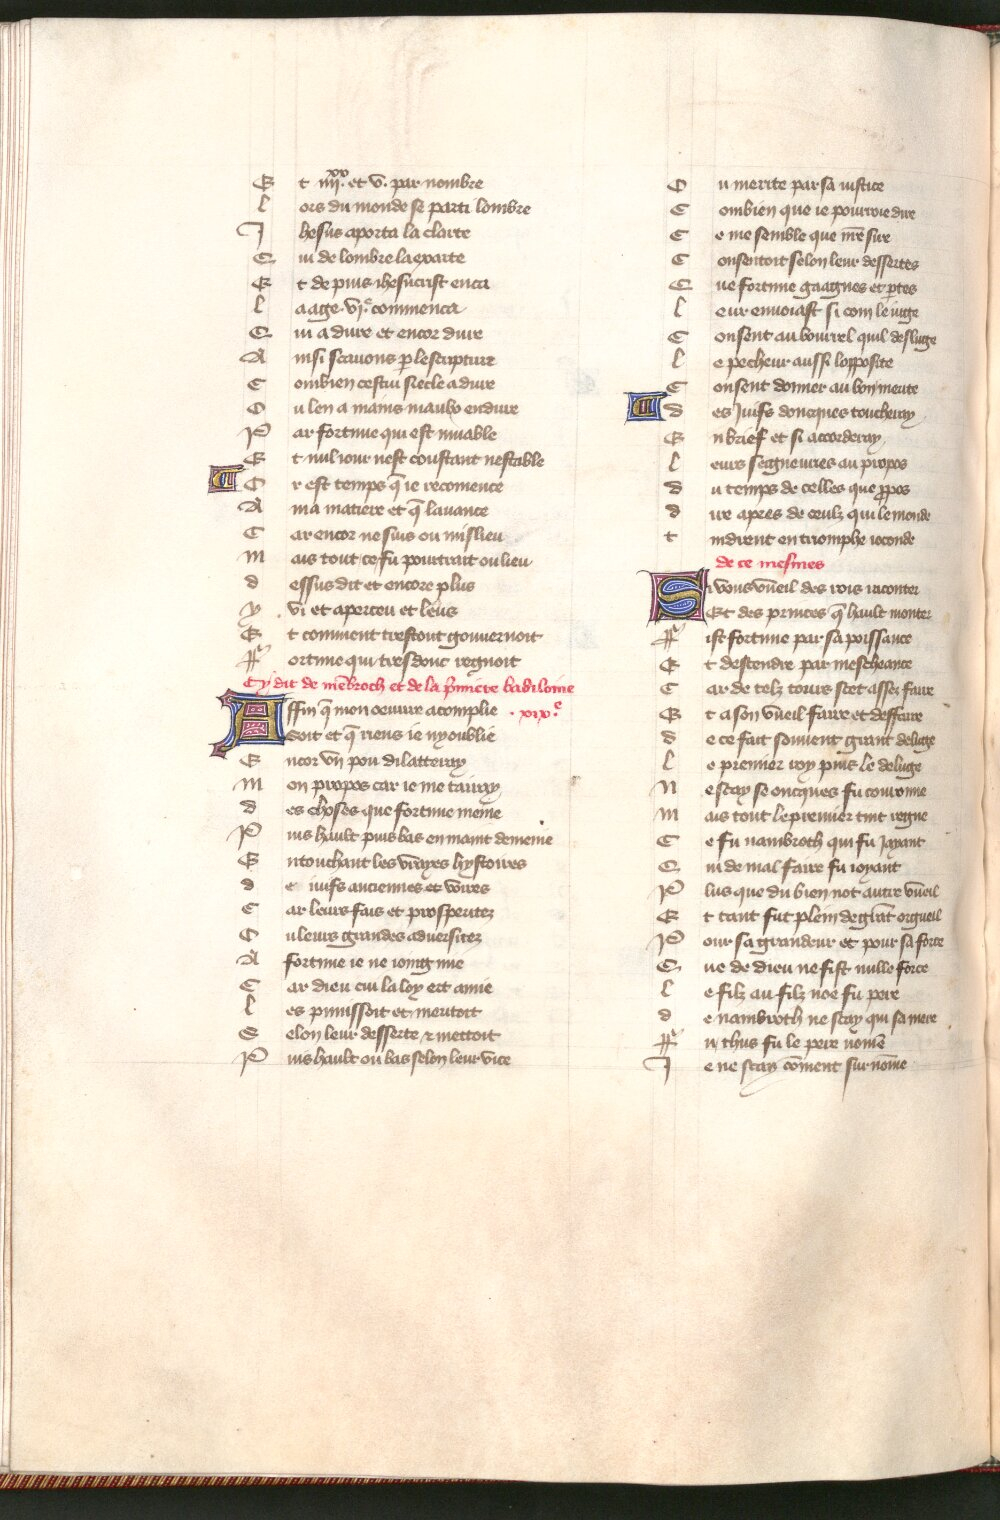 Et iiii.xx et v. par nombre
Lors du monde se parti lombre
Ihesus aporta la clarte
Qui de lombre la exparte
Et depuis ihesucrist enca
Laage .vi.e commenca
Qui a dure et encor dure
Ainsi scauons p lescripture
Combien cestui siecle a dure
Ou len a mains maulx endure
Par fortune qui est muable
Et nul iour nest constant nestable
Or est temps q̄ ie recomence
A ma matiere et q̄ lauance
Car encor ne suis ou mislieu
Mais tout ce fu pourtrait ou lieu
Dessus dit et encore plus
Y vi et aperceu et leus
Et comment trestout gouuernoit
Fortune qui tres donc regnoit
Cy dit de mēbroch et de la p̄miere babiloine
Affin q̄ mon oeuure acomplie .xix.e
Soit et q̄ riens ie ny oublie
Encor vn pou dilatteray
Mon propos car ie me tairay
Des choses que fortune meine
Puis hault puis bas en maint demeine
En touchant les vrayes hystoires
De iuifs anciennes et voires
Car leurs fais et prosperitez
Ou leurs grandes aduersitez
A fortune ie ne ioing mie
Car dieu cui la loy ert amie
Les punissoit et meritoit
Selon leur desserte & mettoit
Puis hault ou bas selon leur vice
Ou merite par sa iustice
Combien que ie pourroie dire
Ce me semble que nr̄e sire
Consentoit selon leur dessertes
Que fortune gaagnes et ptes
Leur enuoiast si com le iuge
Consent au bourrel quil desluge
Le pecheur aussi lopposite
Consent donner au bon merite
Des Juifs doncques toucheray
En brief et si accorderay
Leurs seigneuries au propos
Du temps de celles que ppos
Dire apres de ceulz qui le monde
Tindrent en triomphe ioconde
de ce mesmes
Si vous vueil des rois raconter
Et des princes q̄ hault monter
Fist fortune par sa poissance
Et destendre par mescheance
Car de telz tours scet assez faire
Et a son vueil faire et deffaire
De ce fait souuent grant deluge
Le premier roy puis le deluge
Ne scay se oncques fu couronne
Mais tout le premier tint regne
Ce fu nambroth qui fu Jayant
Qui de mal faire fu ioyant
Plus que du bien not autre vueil
Et tant fut plein de grāt orgueil
Pour sa grandeur et pour sa force
Que de dieu ne fist nulle force
Le filz au filz noe fu pere
De nambroth ne scay qui sa mere
Fu thus fu le pere nomē
Je ne scay cōment surnōme